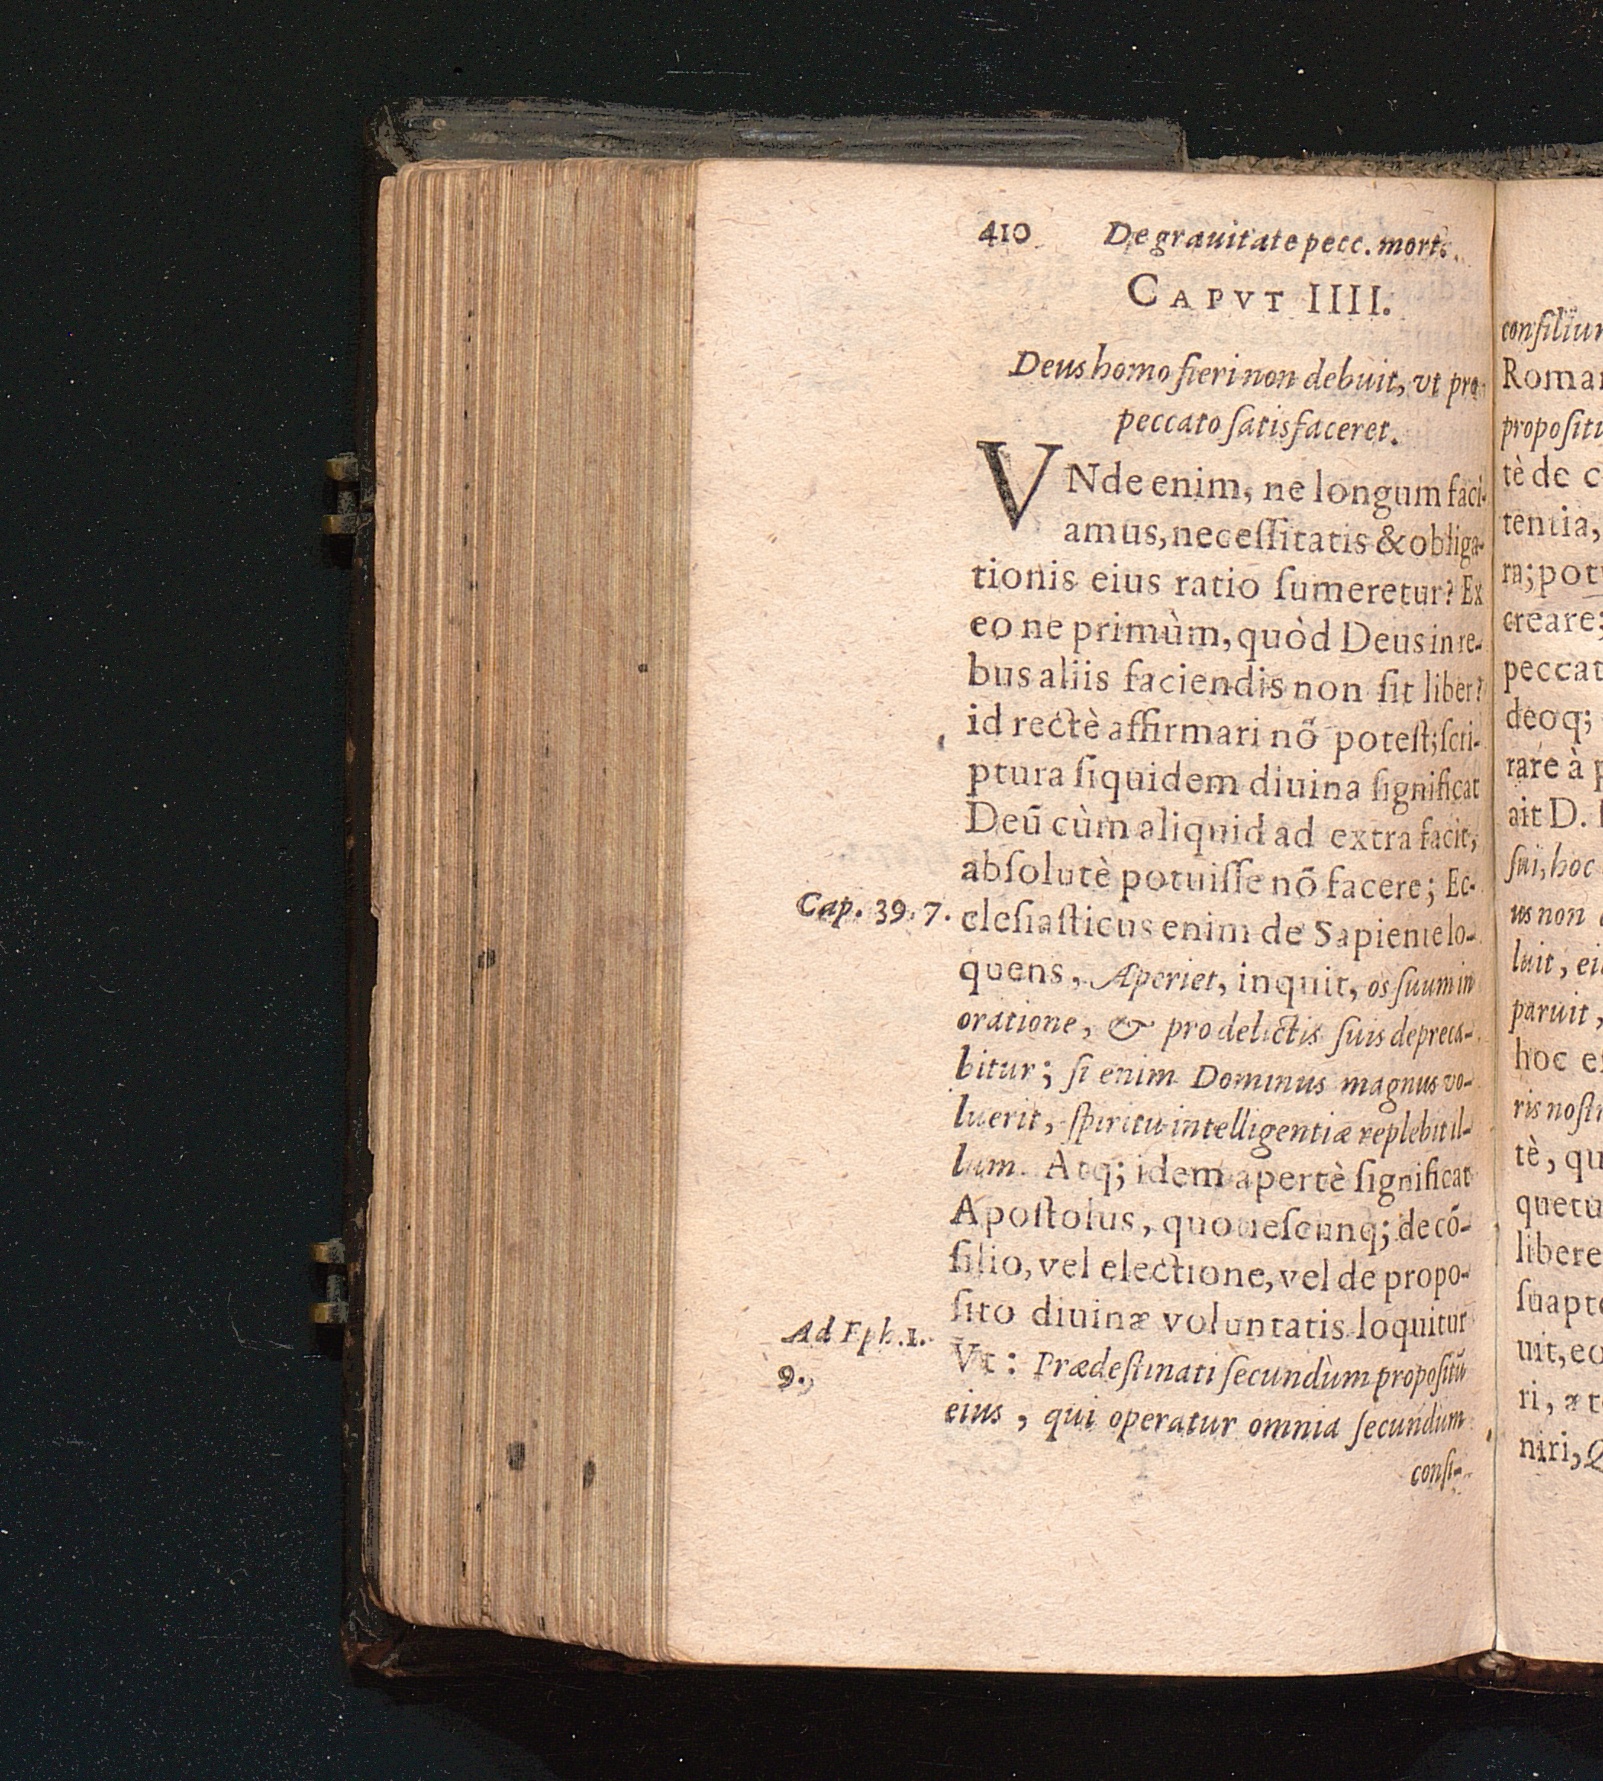 410 De grauitate pecc. mort.
CAPVT IIII.
Deus homo fieri non debuit, vt pro
peccato ſatisfaceret.
VNde enim, ne longum faci-
amus, neceſſitatis & obliga-
tionis eius ratio ſumeretur? Ex
eo ne primùm, quòd Deus in re-
bus aliis faciendis non ſit liber?
id rectè affirmari nõ poteſt; ſcri-
ptura ſiquidem diuina ſignificat
Deũ cùm aliquid ad extra facit,
abſolutè potuiſſe nõ facere; Ec-
Cap. 39. 7.
cleſiaſticus enim de Sapiente lo-
quens, Aperiet, inquit, os ſuum in
oratione, & pro delictis ſuis depreca-
bitur; ſi enim Dominus magnus vo-
luerit, ſpiritu intelligentiæ replebit il-
lum. Atq; idem apertè ſignificat
Apoſtolus, quotieſcunq; de cõ-
ſilio, vel electione, vel de propo-
ſito diuinæ voluntatis loquitur
Ad Eph. 1.
9.
Vt: Prædeſtinati ſecundùm propoſitũ
eius, qui operatur omnia ſecundum
conſi-
Roma
tè de
tentia,
ra; pot
creare;
peccat
deoq;
rare à
ait D.
ſui, hoc
us non
luit, ei
paruit,
hoc
ris noſt
tè, qu
quetu
libere
ſuapt
uit, eo
ri, æt
niri,